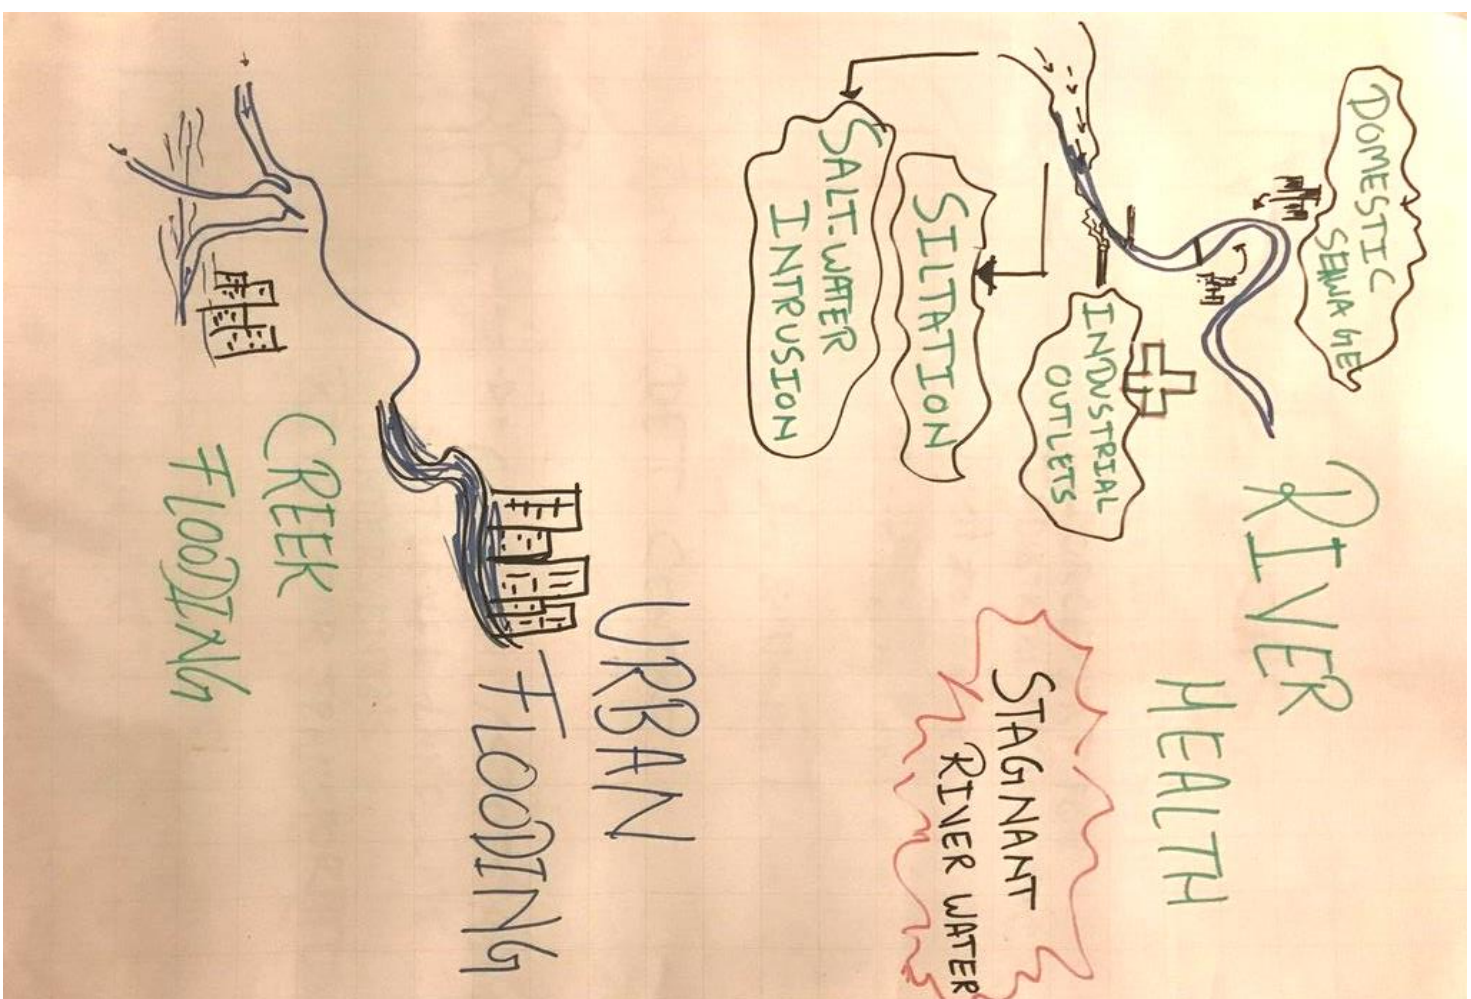 RIVER
HEALTH
DOMESTIC
SEWAGE
INDUSTRIAL
OUTLETS
SILTATION
SALT-WATER
INTRUSION
STAGNANT
RIVER WATER
URBAN
FLOODING
CREEK
FLOODING